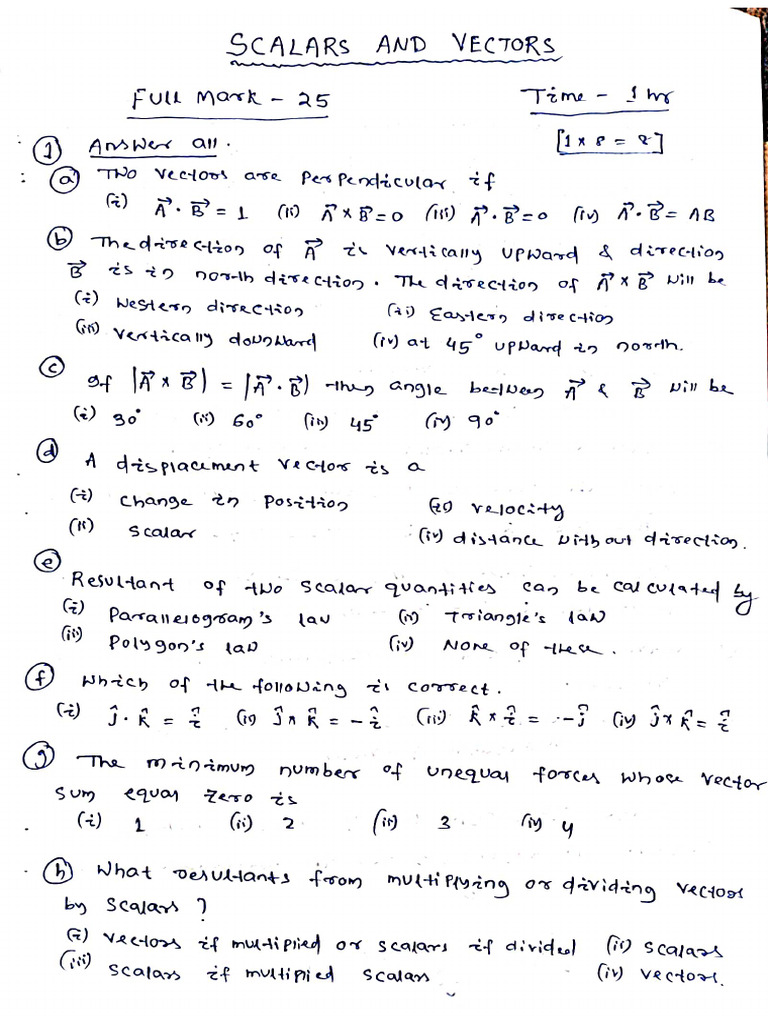 SCALARS AND VECTORS
Full Mark - 25 Time - 1 hr
① Answer all. [1 × 8 = 8]
ⓐ Two vectors are perpendicular if
(i) A⃗ · B⃗ = 1 (ii) A⃗ × B⃗ = 0 (iii) A⃗ · B⃗ = 0 (iv) A⃗ · B⃗ = AB
ⓑ The direction of A⃗ is vertically upward & direction
B⃗ is in north direction. The direction of A⃗ × B⃗ will be
(i) Western direction (ii) Eastern direction
(iii) vertically downward (iv) at 45° upward in north.
ⓒ
If |A⃗ × B⃗| = |A⃗ · B⃗| then angle between A⃗ & B⃗ will be
(i) 30° (ii) 60° (iii) 45° (iv) 90°
ⓓ A displacement vector is a
(i) change in position (ii) velocity
(ii) scalar (iv) distance without direction.
ⓔ
Resultant of two scalar quantities can be calculated by
(i) Parallelogram's law (ii) Triangle's law
(iii) Polygon's law (iv) None of these.
ⓕ Which of the following is correct.
(i) ĵ · k̂ = î (ii) ĵ × k̂ = -î (iii) k̂ × î = -ĵ (iv) ĵ × k̂ = î
ⓖ The minimum number of unequal forces whose vector
sum equal zero is
(i) 1 (ii) 2 (iii) 3 (iv) 4
ⓗ What resultants from multiplying or dividing vectors
by scalars?
(i) vectors if multiplied or scalars if divided (ii) scalars
(iii) scalars if multiplied scalars (iv) vectors.